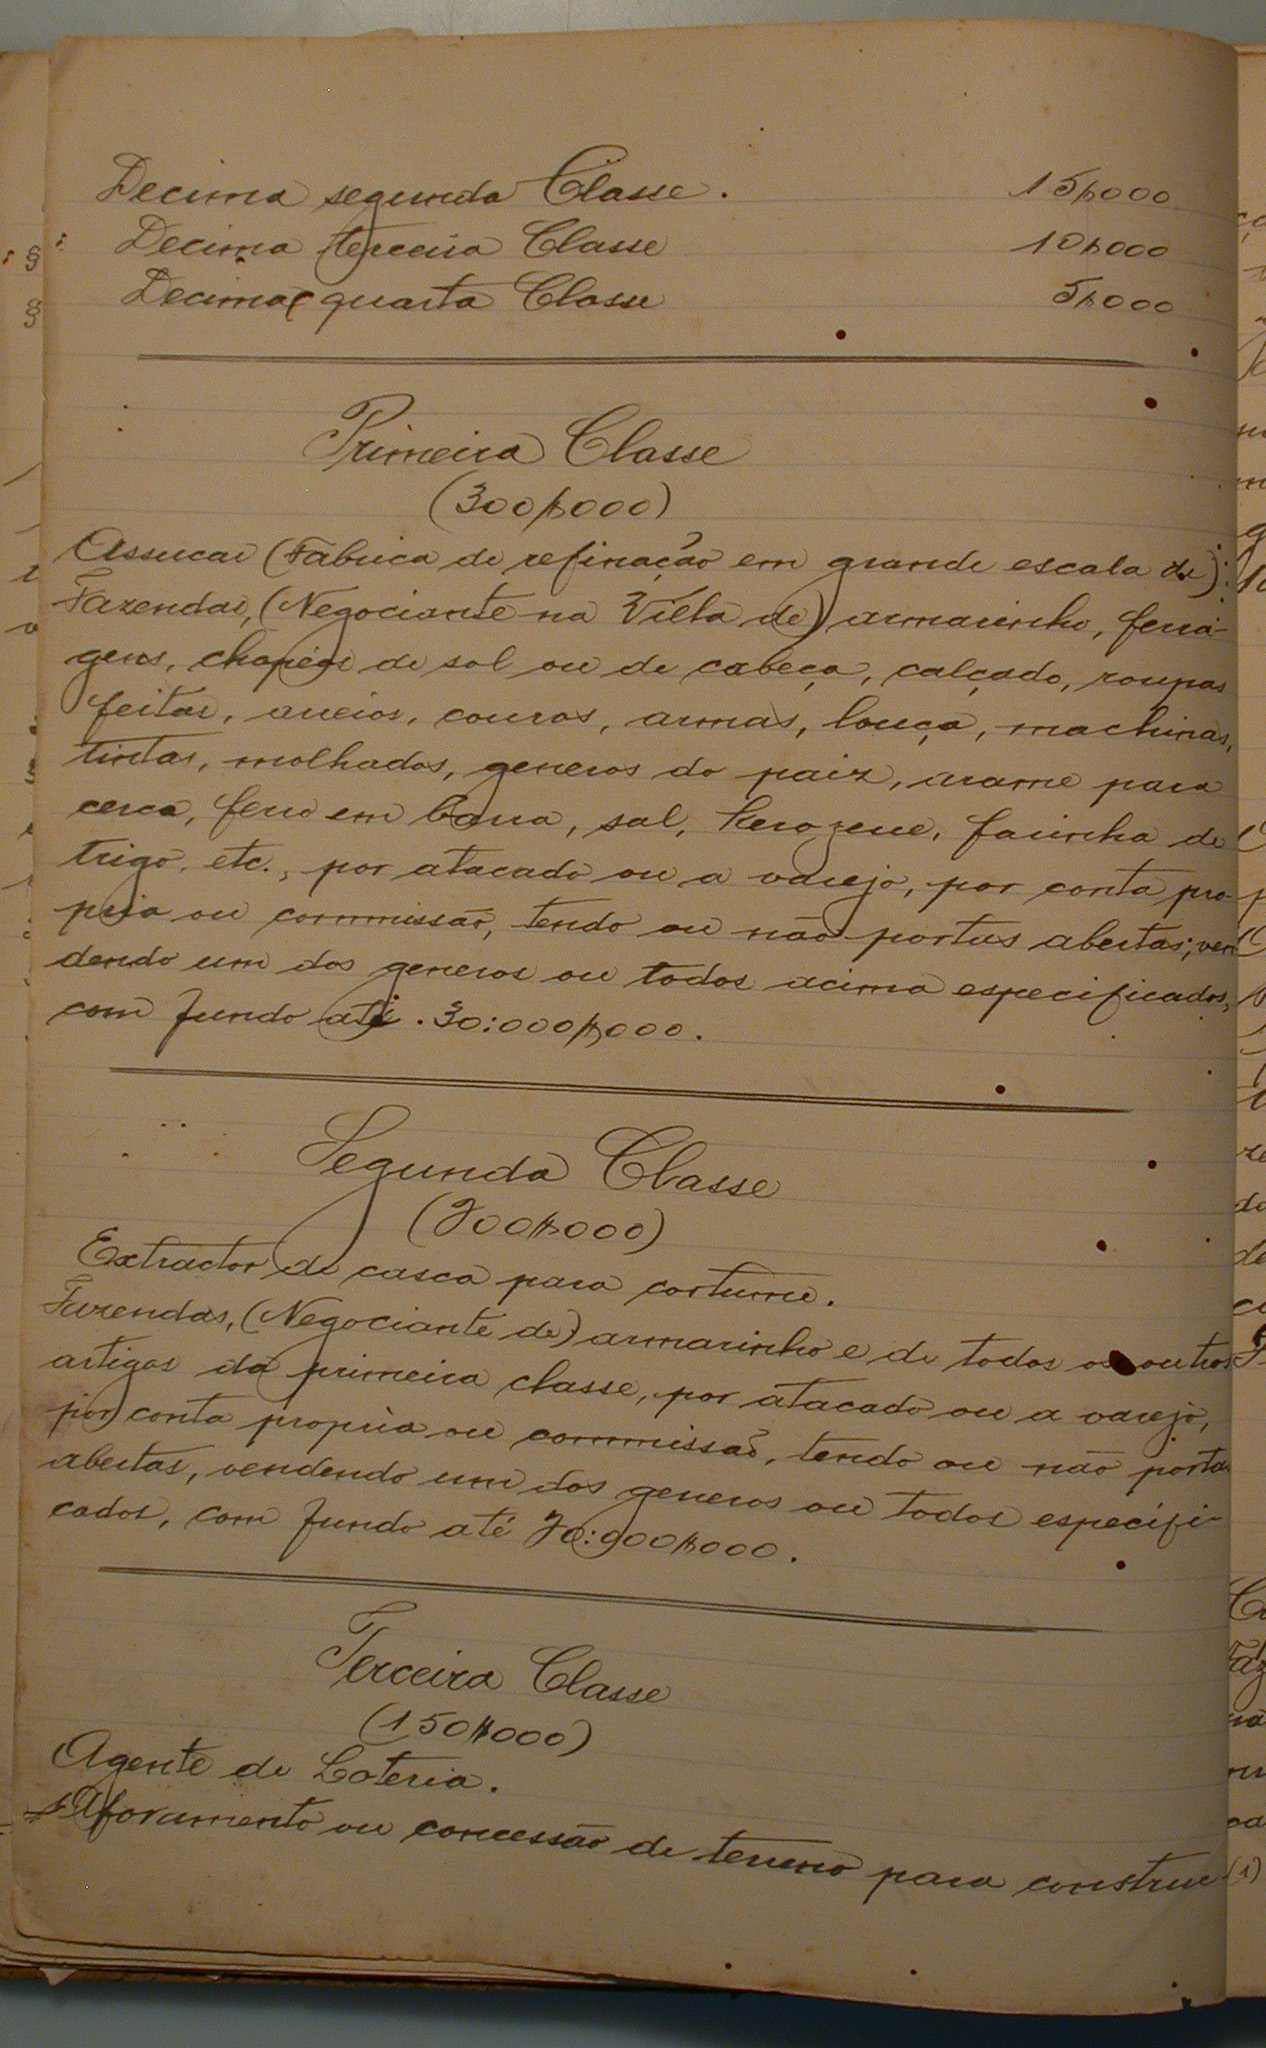 Decima segunda Classe. 15$000
Decima terceira Classe 10$000
Decima quarta Classe 5$000
Primeira Classe
(300$000)
Assucar (Fabrica de refinação em grande escala de);
Fazendas, (Negociante na Villa de) armarinho, ferra-
gens, chapéos de sol ou de cabeça, calçado, roupas
feitas, areios, couros, armas, louça, machinas,
tintas, molhados, generos do paiz, arame para
cerca, ferro em barra, sal, kerozene, farinha de
trigo, etc., por atacado ou a varejo, por conta pro-
pria ou commissão, tendo ou não portas abertas; ven
dendo um dos generos ou todos acima especificados,
com fundo até. 30:000$000.
Segunda Classe
(200$000)
Extractor de casca para cortume.
Fazendas, (Negociante de) armarinho e de todos os outros
artigos da primeira classe, por atacado ou a varejo,
por conta propria ou commissão, tendo ou não portas
abertas, vendendo um dos generos ou todos especifi-
cados, com fundo até 20:000$000.
Terceira Classe
(150$000)
Agente de Loteria.
Aforamento ou concessão de terreno para construc